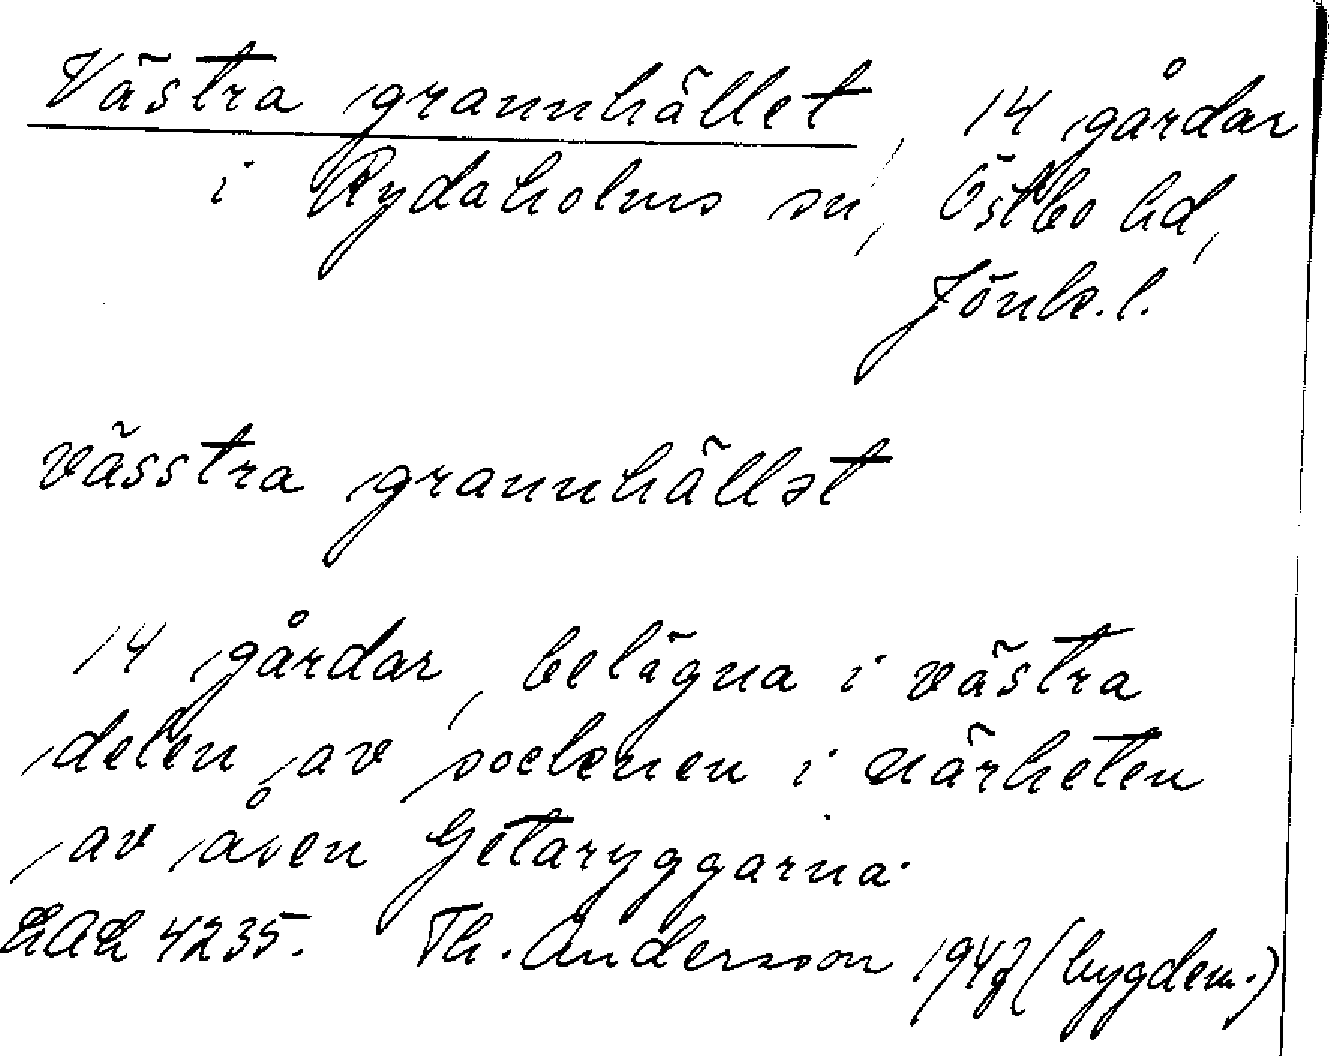 Västra grannhället, 14 gårdar
i Rydaholms sn, Östbo hd,
Jönk.l.
västra grannhällət
14 gårdar, belägna i västra
delen av socknen i närheten
av åsen Getaryggarna.
LAL 4235. Th. Andersson 1947 (bygdem.)